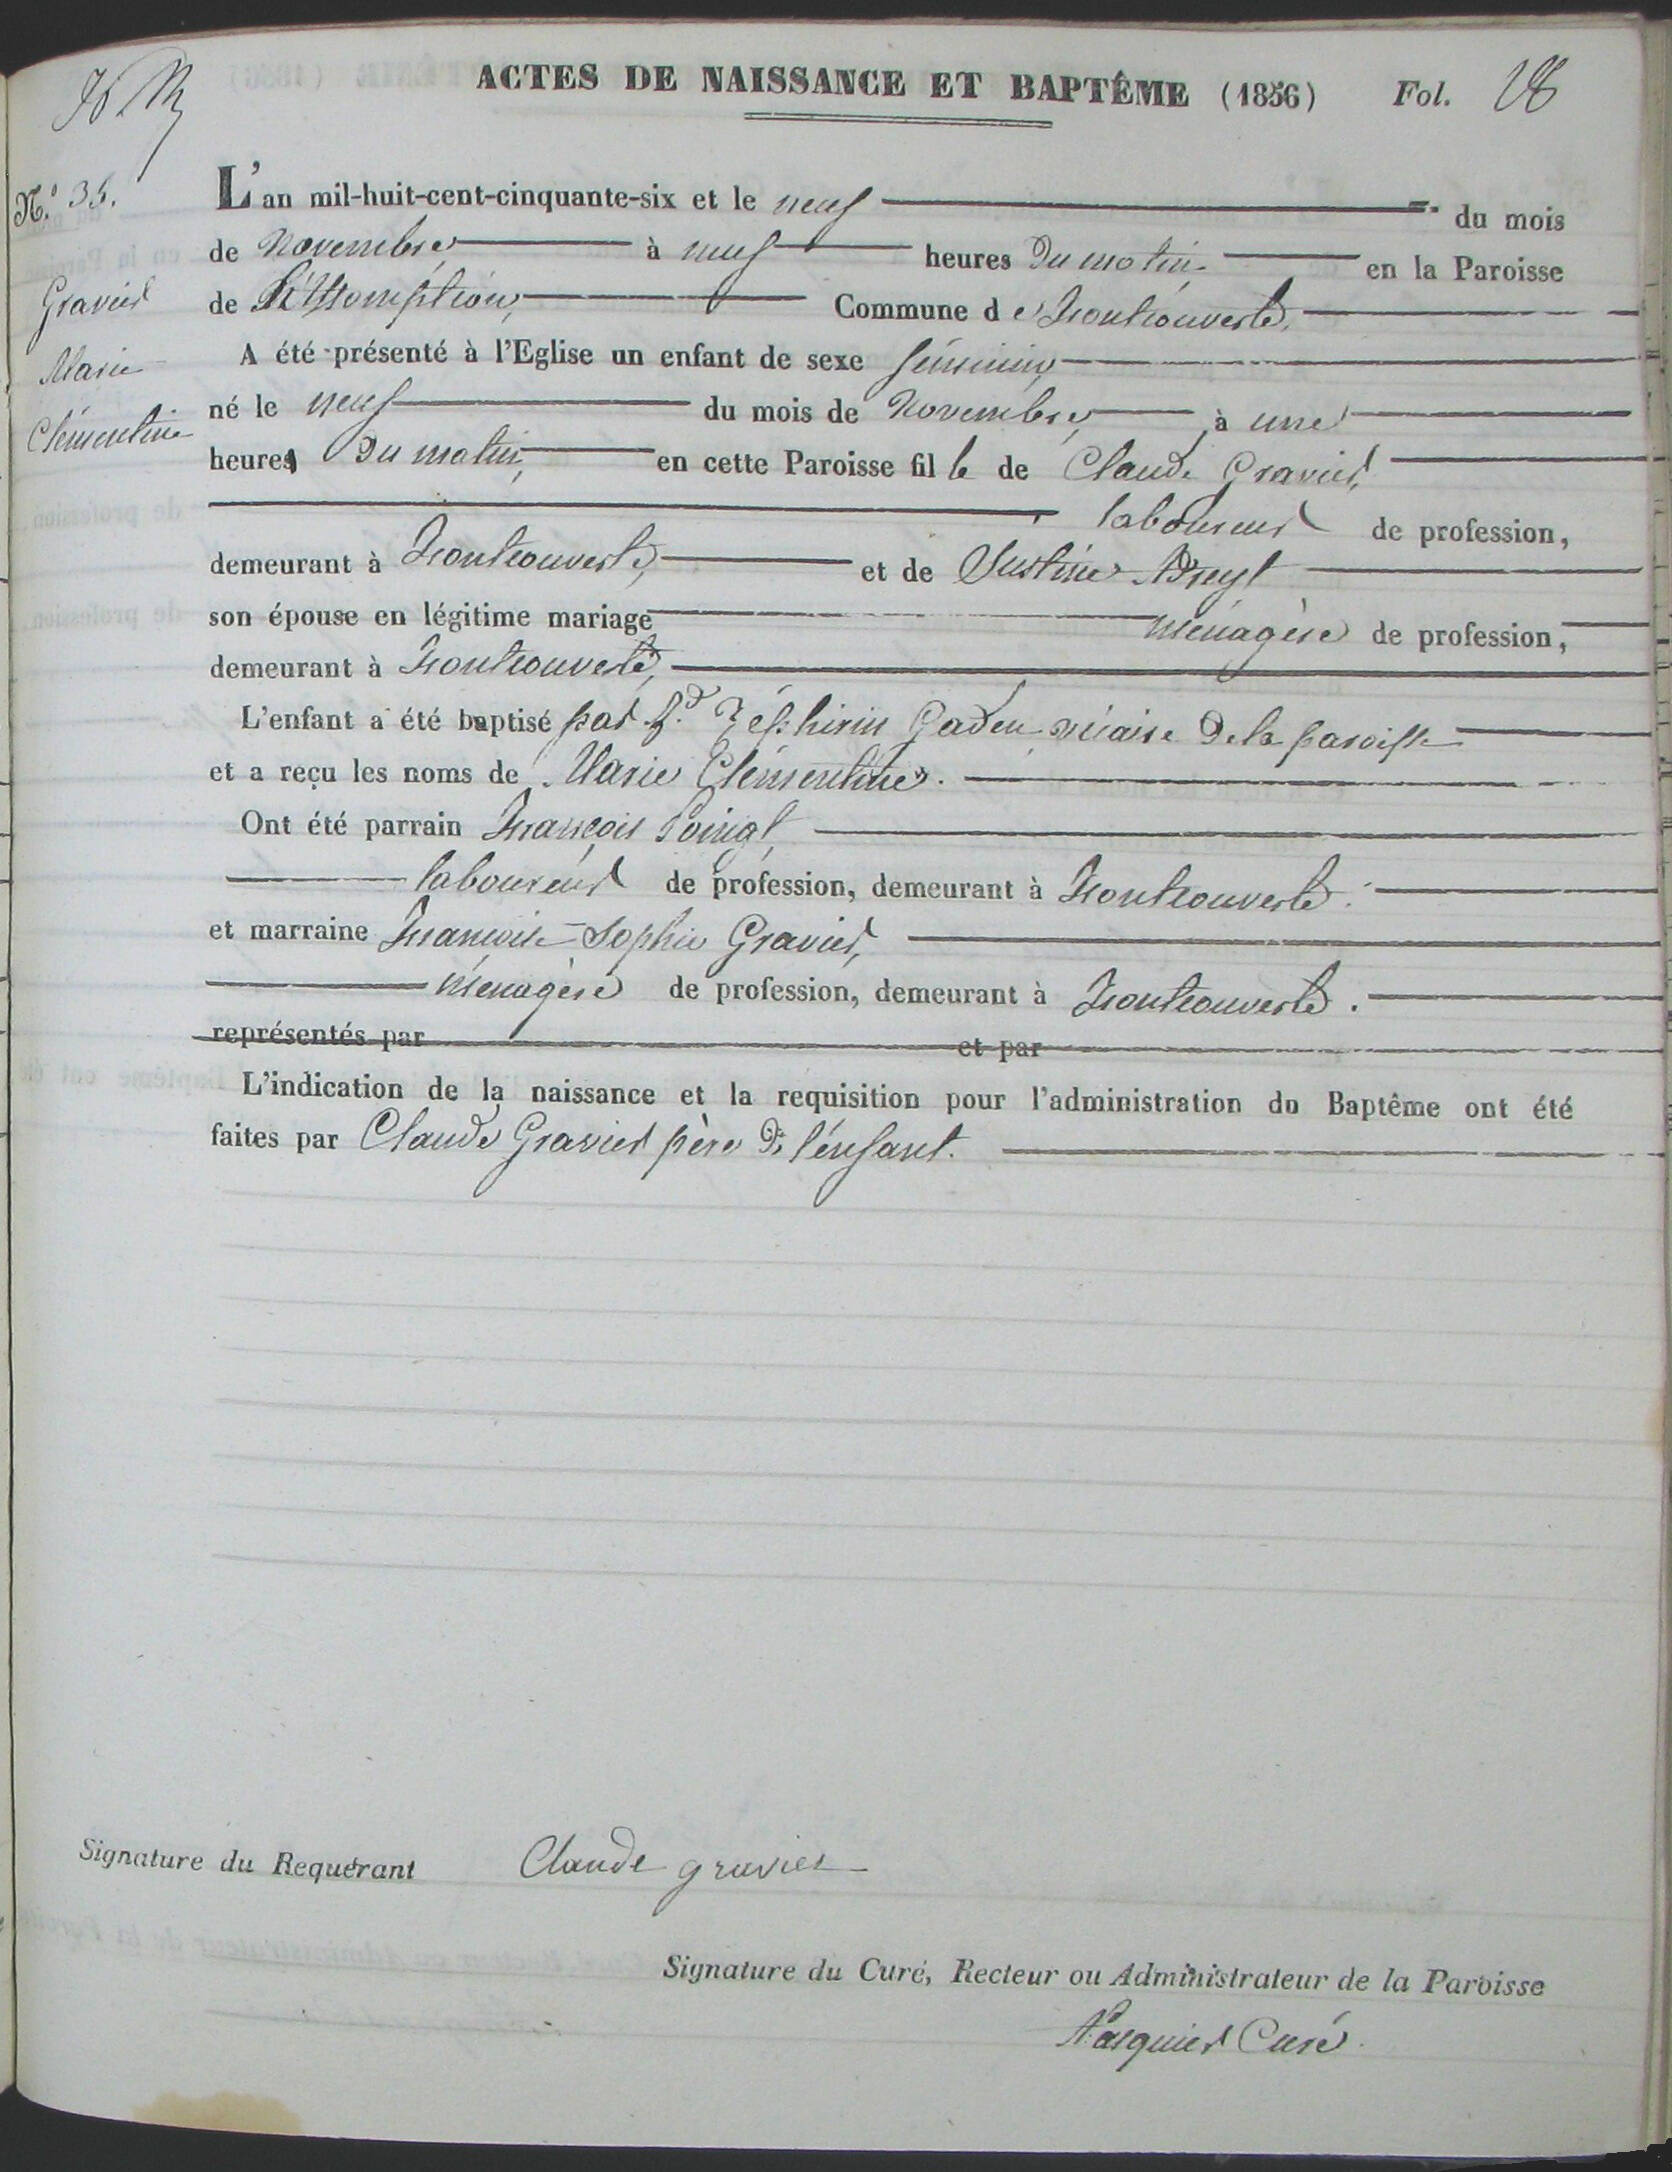 ACTES DE NAISSANCE ET BAPTÊME (1856) Fol. 28
N.º 35.
Gravier
Marie
Clémentine
L'an mil-huit-cent-cinquante-six et le neuf du mois
de Novembre à neuf heures du matin en la Paroisse
de L'Assomption, Commune de Frontenouverte,
A été présenté à l'Eglise un enfant de sexe féminin
né le neuf du mois de Novembre, à une
heure du matin, en cette Paroisse fille de Claude Gravier,
laboureur de profession,
demeurant à et de Justine
son épouse en légitime mariage ménagère de profession,
demeurant à
L'enfant a été baptisé par R.d Zéphirin Gaden vicaire de la paroisse
et a reçu les noms de Marie Clémentine.
Ont été parrain François
laboureur de profession, demeurant à
et marraine Françoise-Sophie Gravier,
ménagère de profession, demeurant à
représentés par et par
L'indication de la naissance et la requisition pour l'administration du Baptême ont été
faites par Claude Gravier père de l'enfant.
Signature du Requérant Claude gravier
Signature du Curé, Recteur ou Administrateur de la Paroisse
Pasquier Curé.